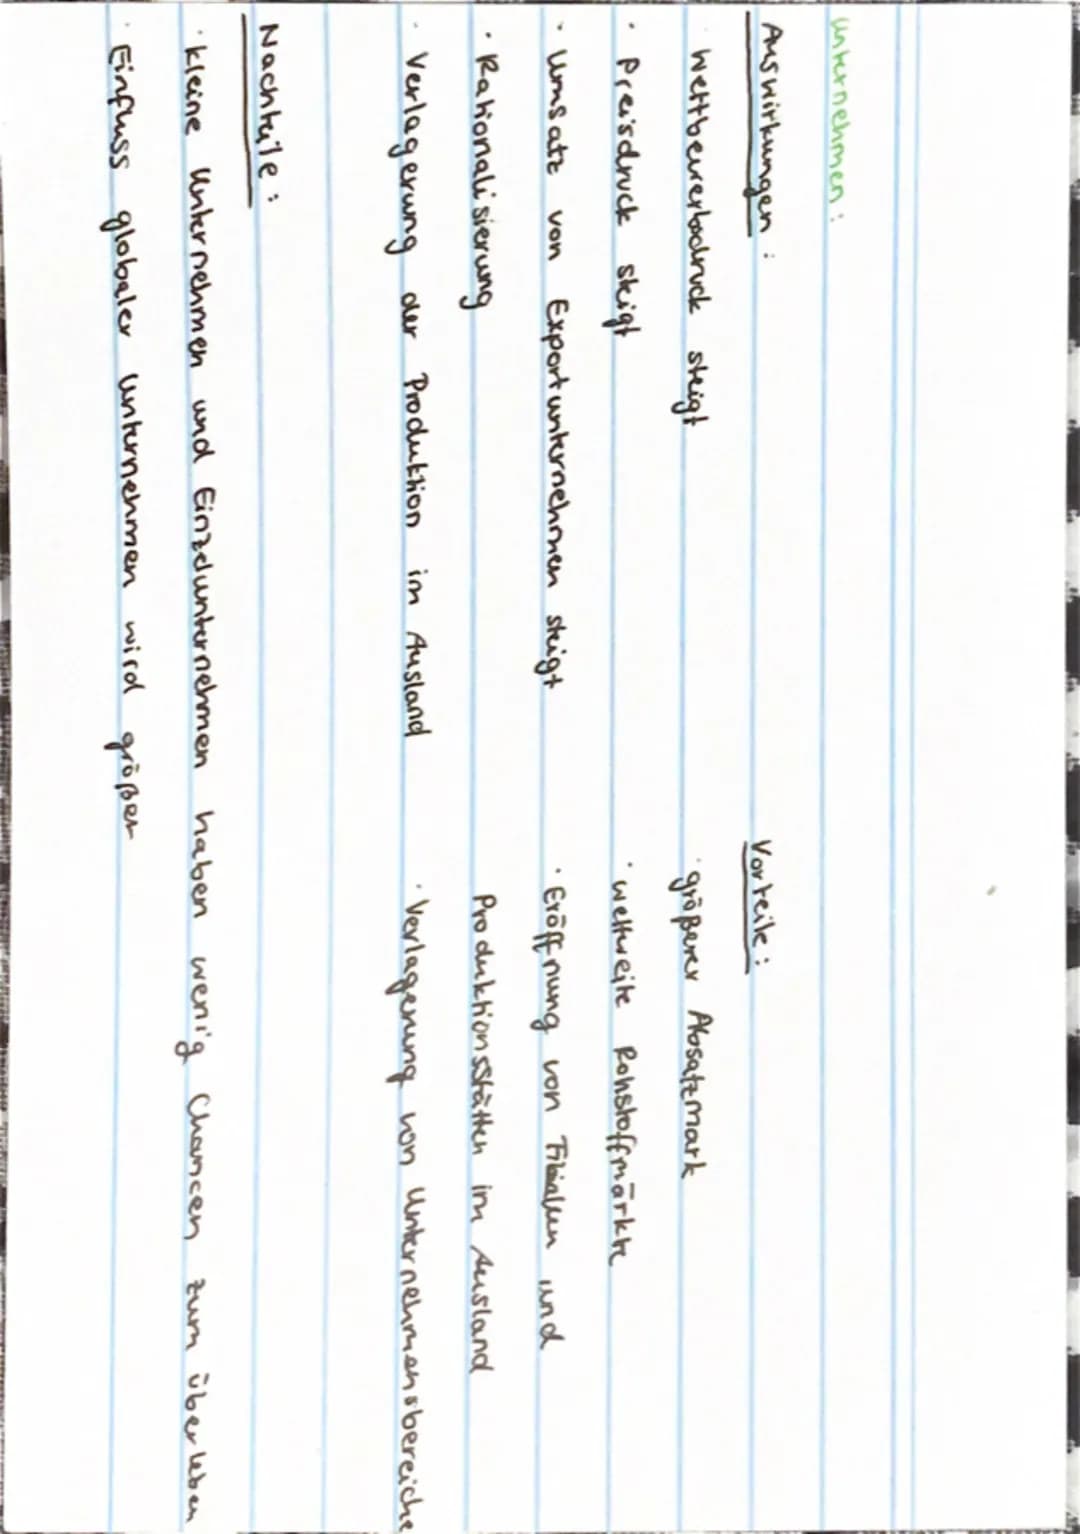 Unternehmen:
Auswirkungen:
Vorteile:
· Wettbewerbsdruck steigt
· größerer Absatzmark
· Preisdruck steigt
· weltweite Rohstoffmärkte
· Umsatz von Exportunternehmen steigt
· Eröffnung von Filialen und
· Rationalisierung
Produktionsstätten im Ausland
· Verlagerung der Produktion im Ausland
· Verlagerung von Unternehmensbereiche
Nachteile:
· kleine Unternehmen und Einzelunternehmen haben wenig Chancen zum überleben
· Einfluss globaler Unternehmen wird größer